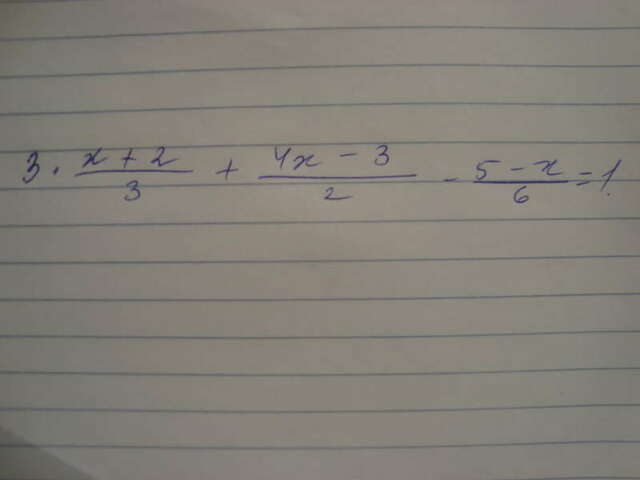 3. \frac{x+2}{3} + \frac{4x-3}{2} - \frac{5-x}{6} = 1.